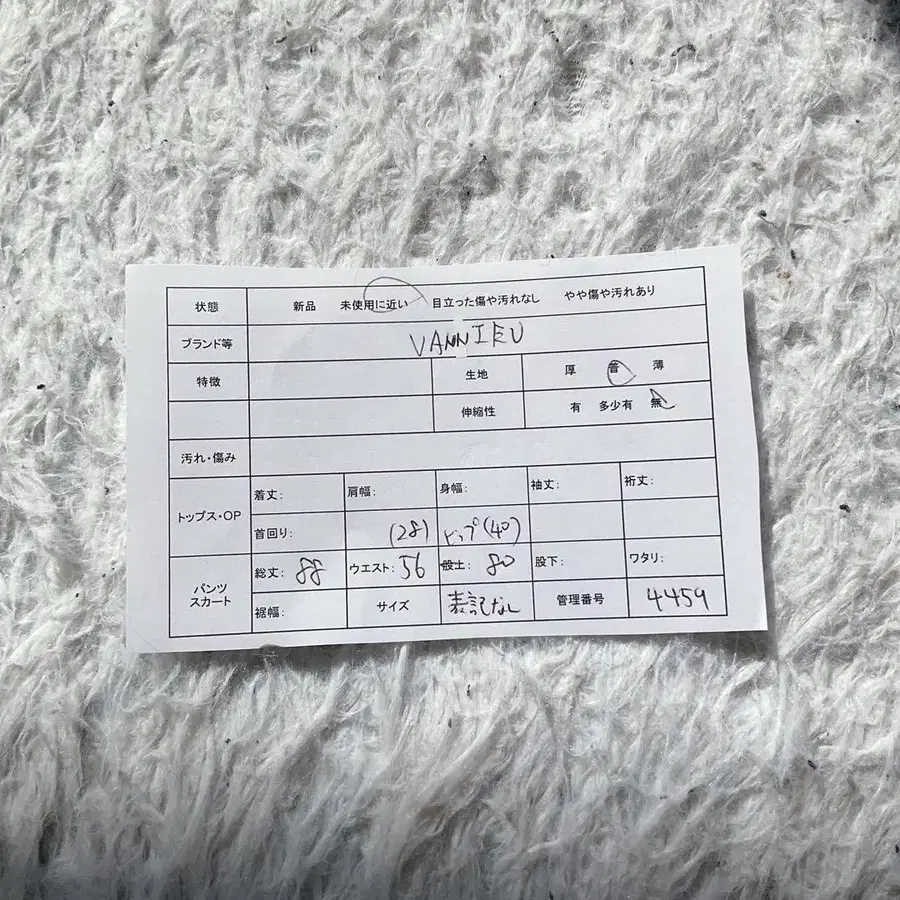 状態 新品 未使用に近い 目立った傷や汚れなし やや傷や汚れあり
ブランド等 VANNIEU
特徴 生地 厚 普 薄
伸縮性 有 多少有 無
汚れ・傷み
トップス・OP 着丈: 肩幅: 身幅: 袖丈: 裄丈:
首回り: (28) ヒップ(40)
パンツ スカート 総丈: 88 ウエスト: 56 股上: 80 股下: ワタリ:
裾幅: サイズ 表記なし 管理番号 4459